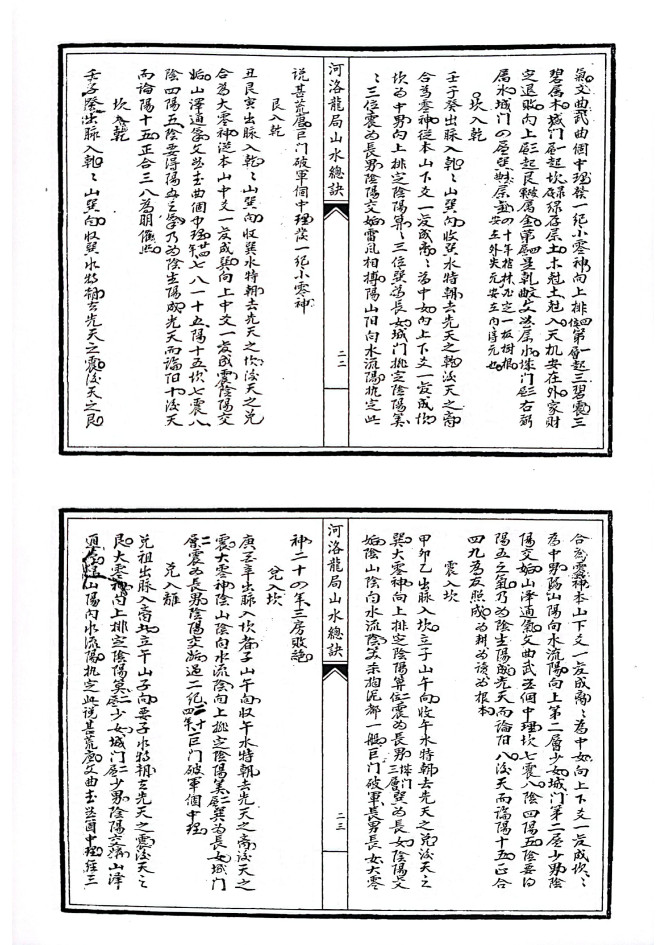 氣文曲武曲個中理發一紀小零神向上排四位第一層起三碧震三
碧屬木城門層一起坎祿綠存屬土木剋土剋入天机安在外家財
定退敗向上層起艮屬金第四星乾
屬水城門
坎入乾
壬子癸出脉入乾乾山巽向收巽水特朝去先天之乾後天之離
合為零神從本山下爻一变成離離為中女向上下爻一变成坎
坎為中男向上排定陰陽算三位巽為長女城門排定陰陽算
三位震為長男陰陽交姤雷風相搏陽山陽向水流陽執定此
河洛龍局山水總訣
二二
说甚荒唐巨门破軍個中理發一紀小零神
艮入乾
丑艮寅出脉入乾乾山巽向收巽水特朝去先天之坎後天之兌
合為大零神從本山中爻一变成巽向上中爻一变成震陰陽交
姤山澤通氣文曲武曲個中理七八十五陽十五坎七震八
陰四陽五陰要得陽五之氣乃為陰生陽成先天而論陽十後天
而論陽十五正合三八為朋催照
坎入乾
壬子癸出脉入乾乾山巽向收巽水特朝去先天之震後天之艮
合為零神本山下爻一变成離離為中女向上下爻一变成坎坎
為中男陽山陽向水流陽向上第二層少女城门第二層少男陰
陽交姤山澤通氣文曲武曲個中理坎七震八陰四陽五陰要得
陽五之氣乃為陰生陽成先天而論陽八後天而論陽十五正合
四九為友照成為耕为读为根本
震入坎
甲卯乙出脉入坎立子山午向收午水特朝去先天之兌後天之
巽大零神向上排定陰陽算位二震為長男城门三層巽為長女陰陽交
姤陰山陰向水流陰笑杀掏泥都一般巨门破軍長男長女大零
河洛龍局山水總訣
二三
神二十四年三房敗絕
兌入坎
庚酉辛出脉入坎者子山午向收午水特朝去先天之离後天之
震大零神陰山陰向水流陰向上排定陰陽算二層巽為長女城门
二層震为長男陰陽交姤過二紀二十四年巨门破軍個中理
兌入離
兌祖出脉入离立午山子向要子水特朝去先天之震後天之
艮大零神向上排定陰陽算二層少女城门二層少男陰陽交姤山澤
通氣陽山陽向水流陽执定此说甚荒唐文曲武曲個中理經三